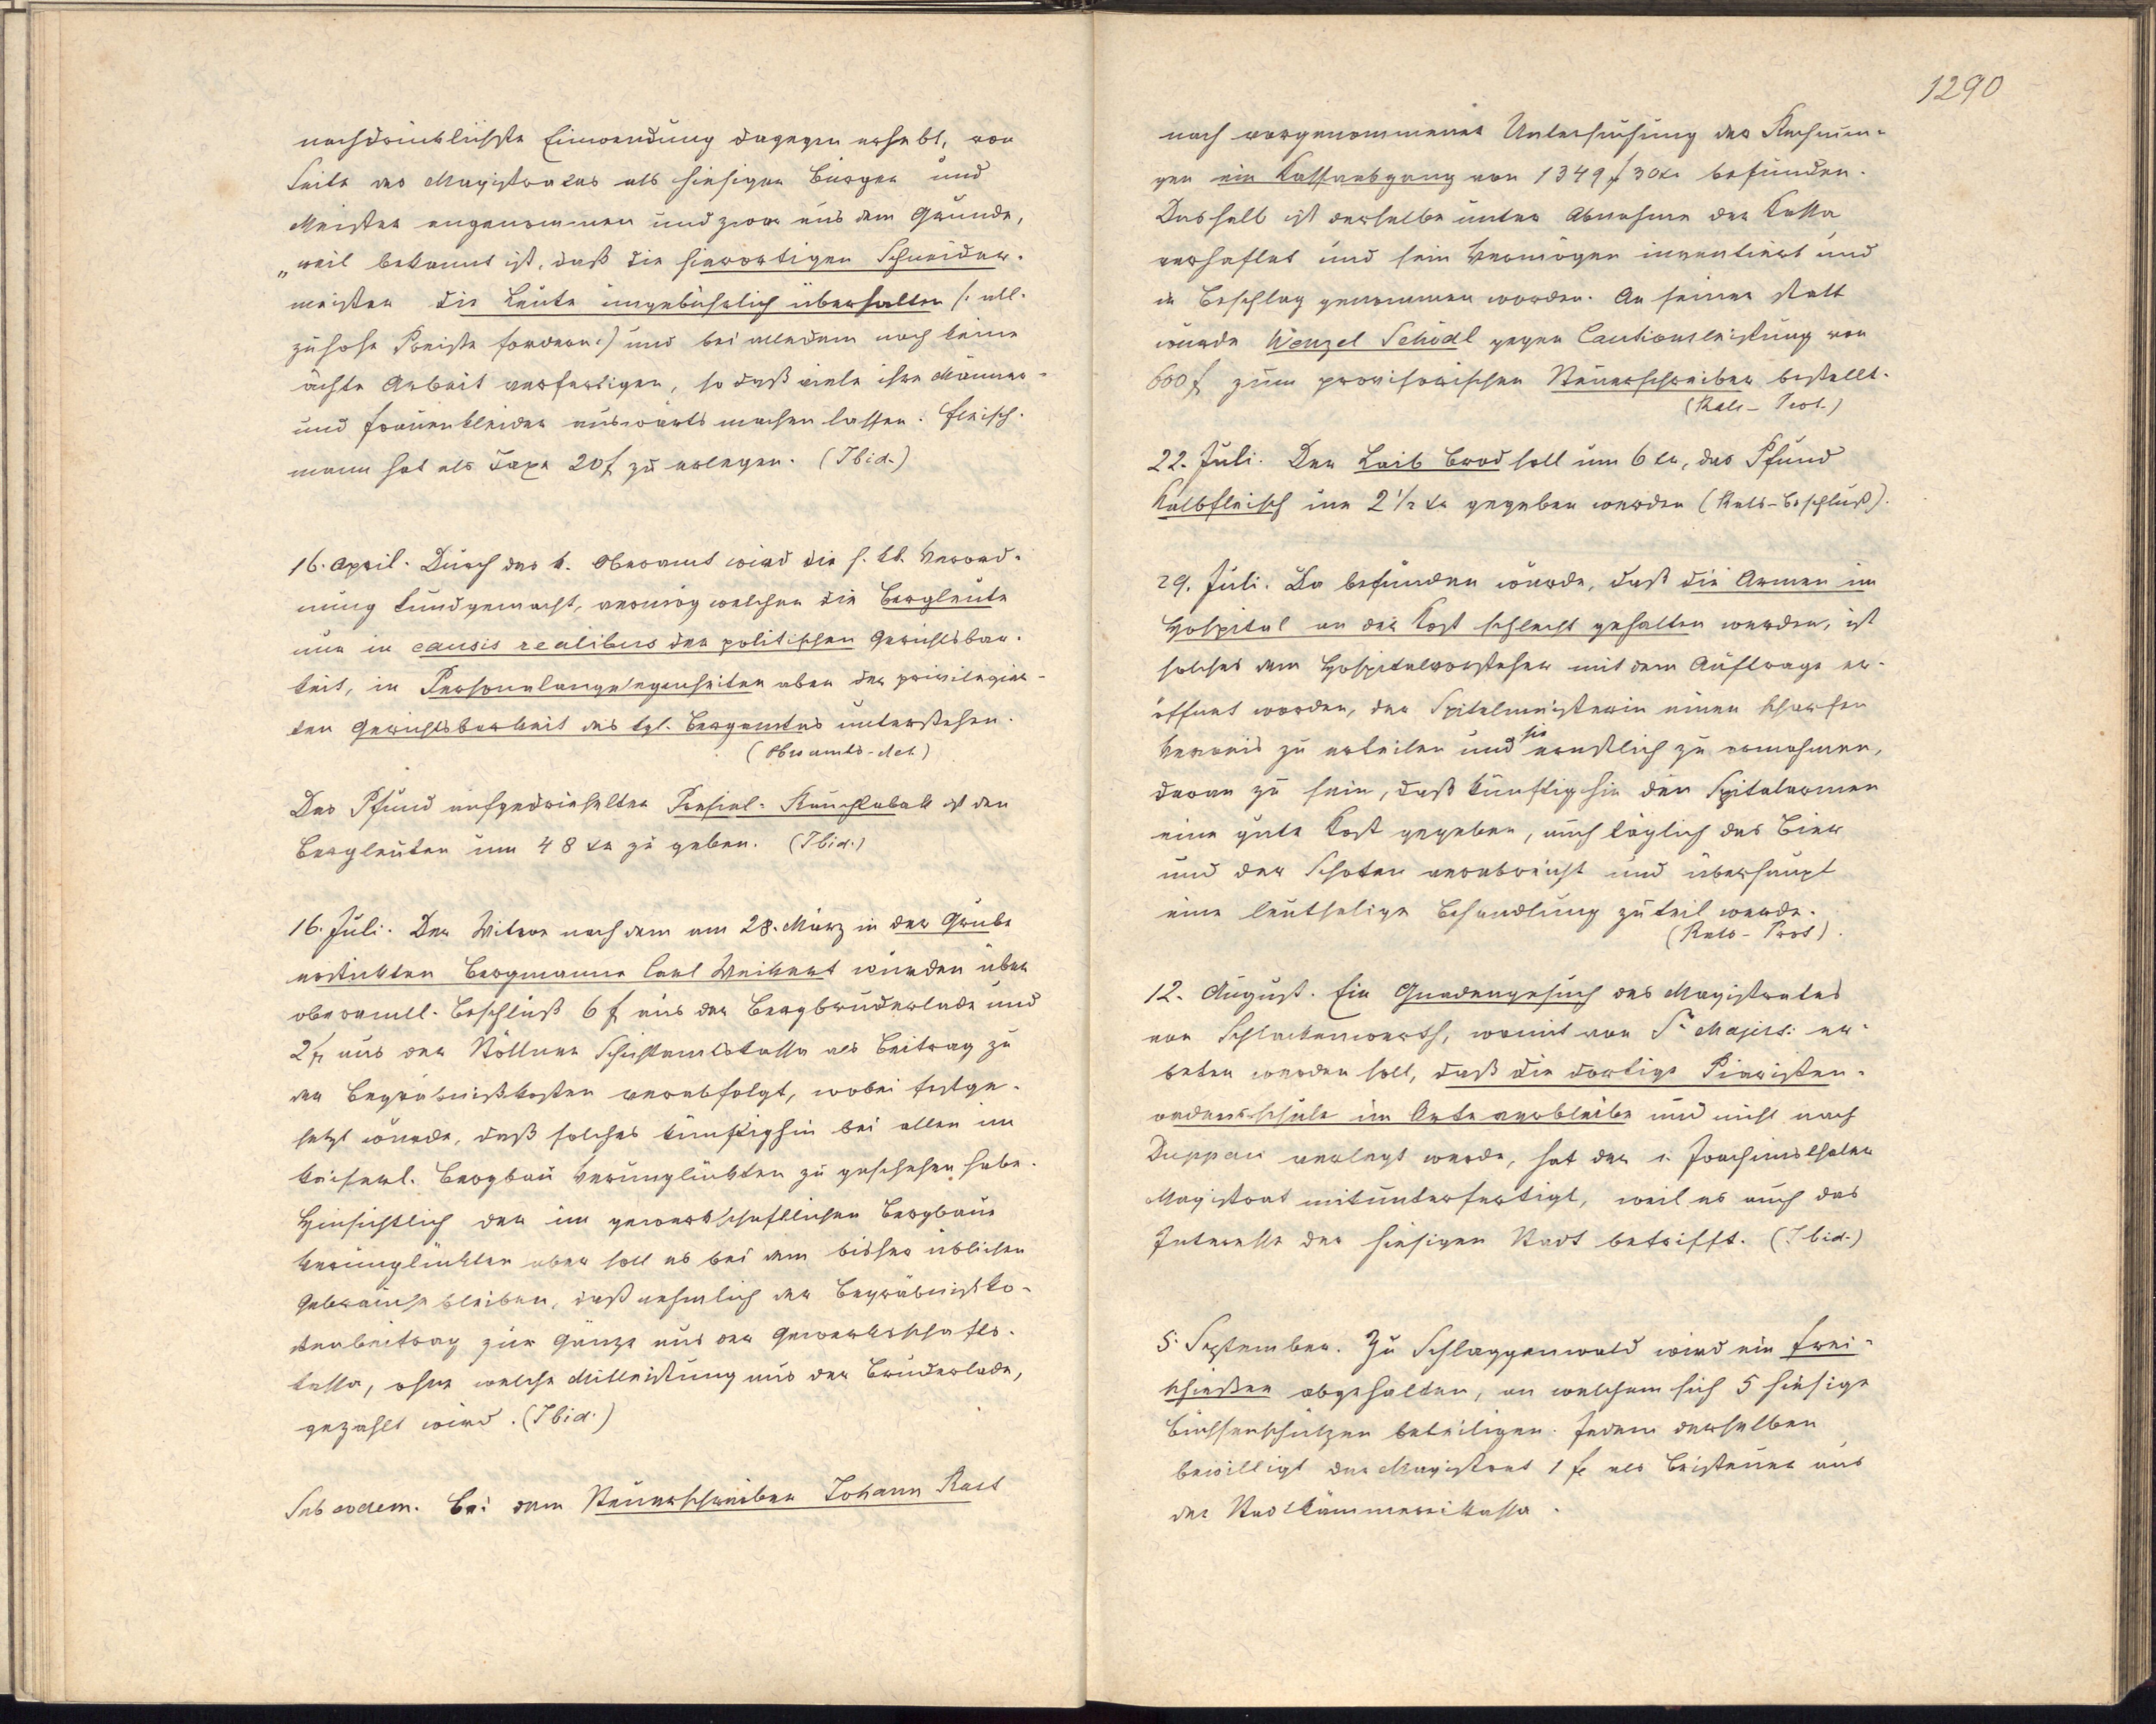 nachdrücklichste Einwendung dagegen erhebt, von
Seite des Magistrates als hiesiger Bürger und
Meister angenommen und zwar aus dem Grunde,
„weil bekannt ist, daß die hierortigen Schneider-
meister die Leute ungebührlich überhalten (: all-
zuhohe Preiße fordern :) und bei alledem noch keine
ächte Arbeit verfertigen, so daß viele ihre Männer-
und Frauenkleider auswärts machen lassen. Fleisch-
mann hat als Taxe 20 f zu erlegen. (Ibid.)
16. April. Durch das k. Oberamt wird die h. kk. Verord-
nung kundgemacht, vermög welcher die Bergleute
nur in causis realibus der politischen Gerichtsbar-
keit, in Personalangelegenheiten aber der privilegier-
ten Gerichtsbarkeit des kgl. Bergamtes unterstehen.
(Oberamts-Act.)
Das Pfund aufgedrieselter Rauchtabak ist den
Bergleuten um 48 xr zu geben. (Ibid.)
16. Juli. Der Witwe nach dem am 28. März in der Grube
erstickten Bergmanne Carl Weikert wurden über
oberamtl. Beschluß 6 f aus der Bergbruderlade und
2 f aus der Stollner Schichtamtskassa als Beitrag zu
den Begräbnißkosten verabfolgt, wobei festge-
setzt wurde, daß solches künftighin bei allen im
kaiserl. Bergbau Verunglückten zu geschehen habe.
Hinsichtlich der im gewerkschaftlichen Bergbaue
Verunglückten aber soll es bei dem bisher üblichen
Gebrauche bleiben, daß nehmlich der Begräbnißko-
stenbeitrag zur Gänze aus der Gewerkschafts-
kassa, ohne welche Mitleistung aus der Bruderlade,
gezahlt wird. (Ibid.)
Sub eodem. Bei dem Steuerschreiber Johann Rast
1290
nach vorgenommener Untersuchung der Rechnun-
gen ein Kassaabgang von 1349 f 30 xr befunden.
Deshalb ist derselbe unter Abnahme der Kassa
verhaftet und sein Vermögen inventiert und
in Beschlag genommen worden. An seiner statt
wurde Wenzel Schödl gegen Cautionsleistung von
600 f zum provisorischen Steuerschreiber bestellt.
(Rats-Prot.)
22. Juli. Der Laib Brod soll um 6 xr, das Pfund
Kalbfleisch um 2 1/2 xr gegeben werden (Rats-Beschluß).
29. Juli. Da befunden wurde, daß die Armen im
Hospital an der Kost schlecht gehalten werden, ist
solches dem Hospitalvorsteher mit dem Auftrage er-
öffnet worden, der Spitelmeisterin einen scharfen
Verweis zu erteilen und sie ernstlich zu ermahnen,
daran zu sein, daß künftighin den Spitalarmen
eine gute Kost gegeben, auch täglich das Bier
und der Schoten verabreicht und überhaupt
eine leutselige Behandlung zuteil werde.
(Rats-Prot).
12. August. Ein Gnadengesuch des Magistrates
von Schlackenwerth, womit von Sr. Majest: er-
beten werden soll, daß die dortige Piaristen-
ordensschule im Orte verbleibe und nicht nach
Duppau verlegt werde, hat der St. Joachimsthaler
Magistrat mitunterfertigt, weil es auch das
Interesse der hiesigen Stadt betrifft. (Ibid.)
5. September. Zu Schlaggenwald wird ein Frei-
schießen abgehalten, an welchem sich 5 hiesige
Büchsenschützen beteiligen. Jedem derselben
bewilligt der Magistrat 1 f als Beisteuer aus
der Stadtkämmereikassa.